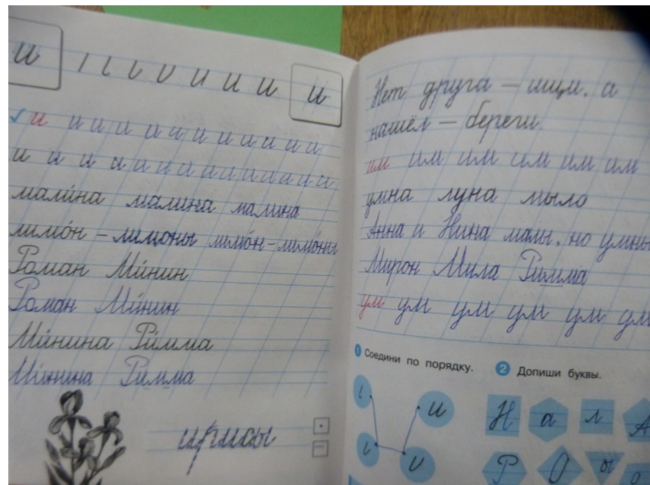 и и и и и и
и и и и и и и и и и и и
и и и и и и и и и и и и и
мали́на малина малина
лимо́н – лимоны лимо́н – лимо́ны
Роман Ми́нин
Роман Ми́нин
Ми́нина Ри́мма
Ми́нина Римма
ирисы
Нет друга – ищи, а
нашёл – береги.
им им им им им им
умна луна мыло
Анна и Нина малы, но умны
Мирон Мила Римма
ум ум ум ум ум ум
1 Соедини по порядку.
2 Допиши буквы.
и
Н а л А
Р О ы